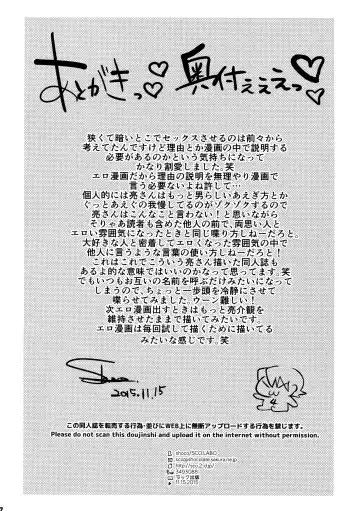 あとがきっ♡ 奥付ぇぇぇっ♡
狭くて暗いとこでセックスさせるのは前々から
考えてたんですけど理由とか漫画の中で説明する
必要があるのかという気持ちになって
かなり割愛しました。笑
エロ漫画だから理由の説明を無理やり漫画で
言う必要ないよね許して…
個人的には亮さんはもっと男らしいあえぎ方とか
ぐっとあえぐの我慢してるのがゾクゾクするので
亮さんはこんなこと言わない!と思いながら
そりゃあ読者も含めた他人の前で、両思い人と
エロい雰囲気になったときと同じ喋り方しねーだろと。
大好きな人と密着してエロくなった雰囲気の中で
他人に言うような言葉の使い方しねーだろと!
これはこれでこういう亮さん描いた同人誌も
あるよ的な意味ではいいのかなって思ってます。笑
でもいつもお互いの名前を呼ぶだけみたいになって
しまうので、ちょっと一歩頭を冷静にさせて
喋らせてみました。ウーン難しい!
次エロ漫画出すときはもっと亮介観を
維持させたままで描いてみたいです。
エロ漫画は毎回試して描くために描いてる
みたいな感じです。笑
2015.11.15
この同人誌を転売する行為・並びにWEB上に無断アップロードする行為を禁じます。
Please do not scan this doujinshi and upload it on the internet without permission.
shoco/SCOLABO
3493088
11.15.2015